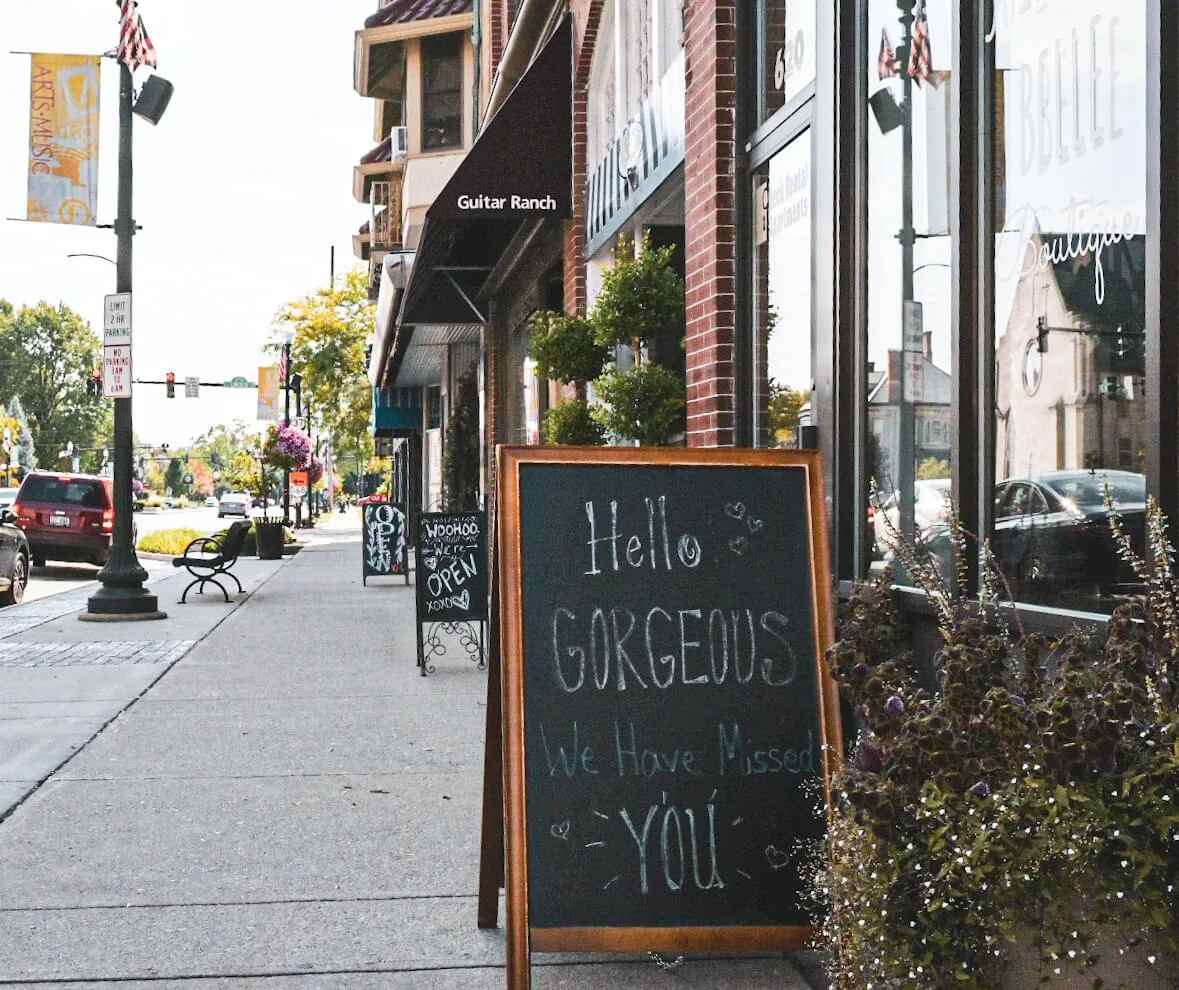 ARTS•MUSIC
LIMIT
2 HR
PARKING
NO
PARKING
3AM
TO
6AM
Guitar Ranch
620
BELLEE
Boutique
OPEN
WOOHOO
We're
OPEN
XOXO
Hello
GORGEOUS
We Have Missed
YOU